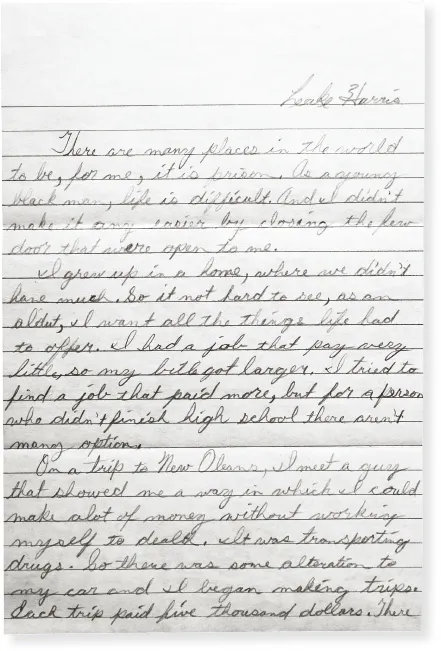 Leake Harris
There are many places in the world
to be, for me, it is prison. As a young
black man, life is difficult. And I didn't
make it any easier by closing the few
door that were open to me.
I grew up in a home, where we didn't
have much. So it not hard to see, as an
aldut, I want all the things life had
to offer. I had a job that pay very
little, so my bills got larger. I tried to
find a job that paid more, but for a person
who didn't finish high school there aren't
many option.
On a trip to New Oleans, I meet a guy
that showed me a way in which I could
make alot of money without working
myself to death. It was transporting
drugs. So there was some alteration to
my car and I began making trips.
Each trip paid five thousand dollars. There